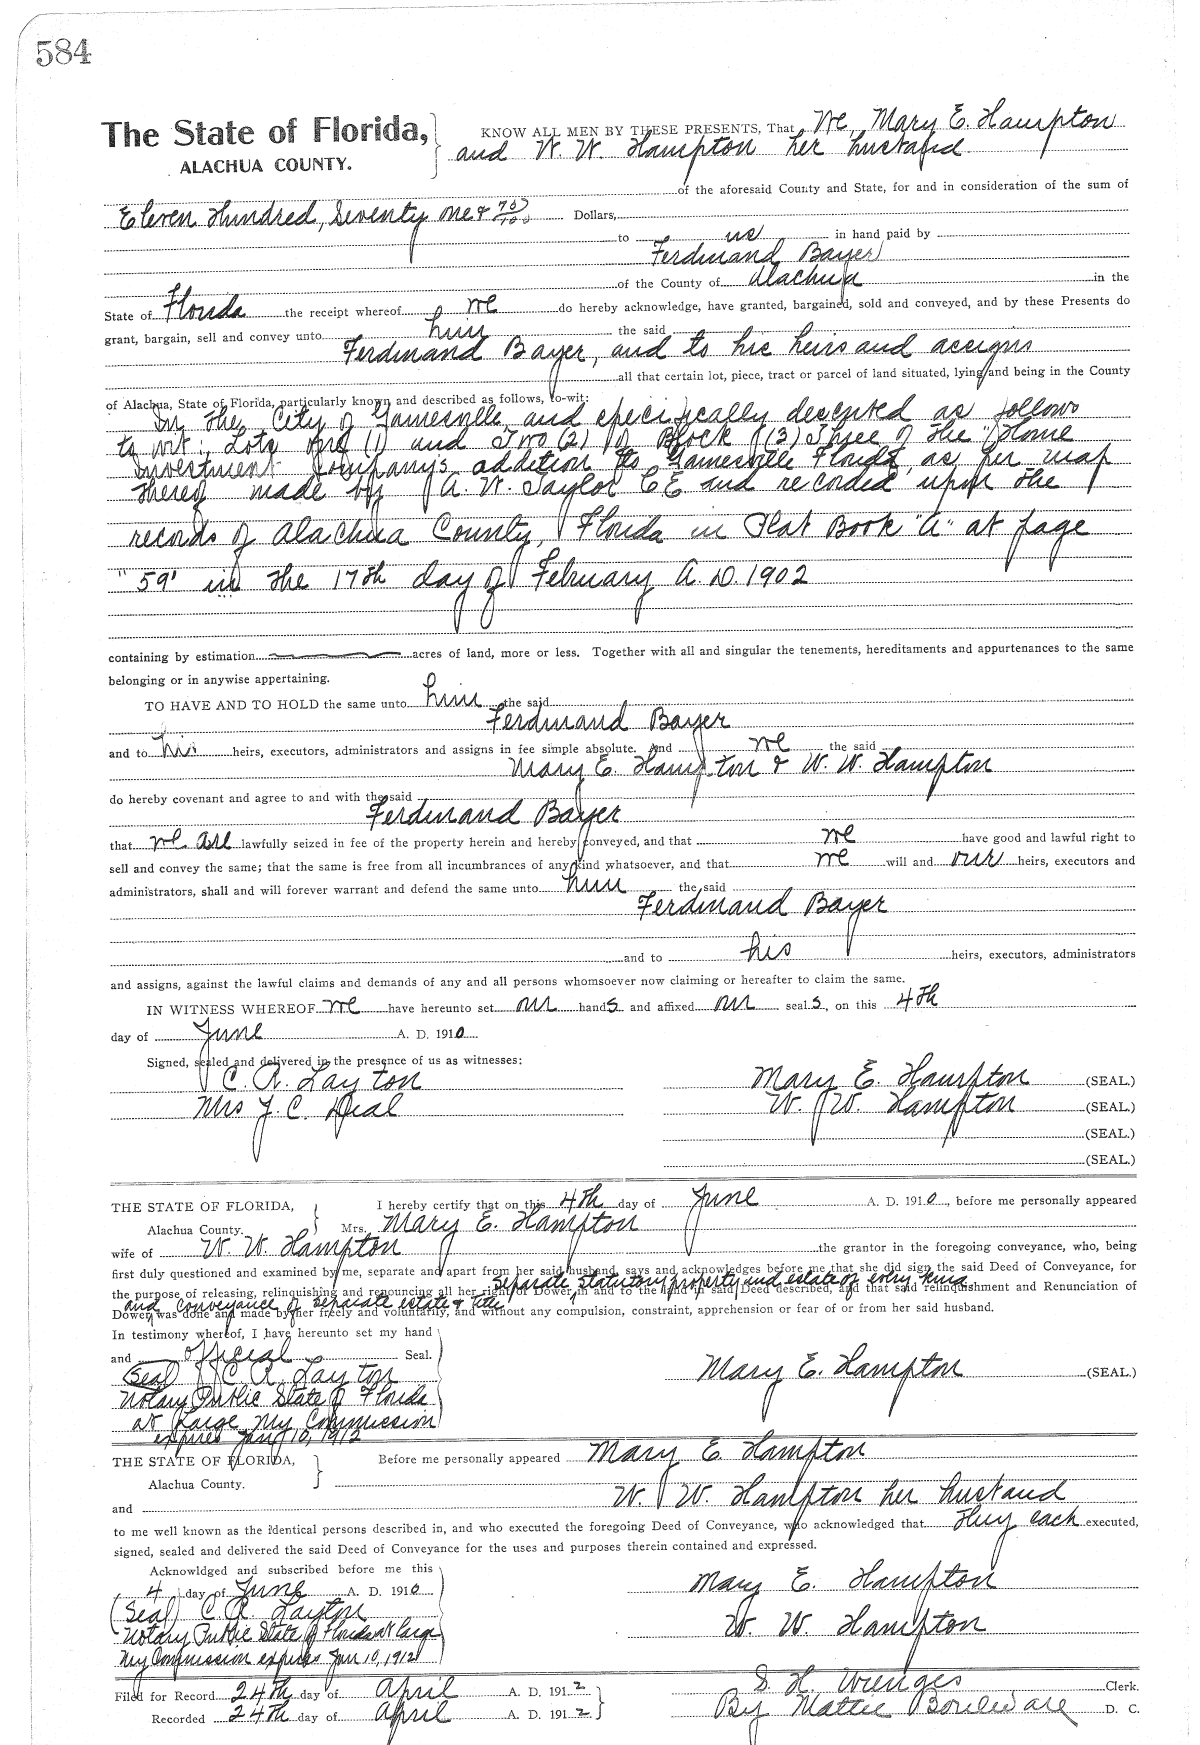 584
The State of Florida,
ALACHUA COUNTY.
KNOW ALL MEN BY THESE PRESENTS, That We, Mary E. Hampton
and W. W. Hampton her husband
of the aforesaid County and State, for and in consideration of the sum of
Eleven Hundred, Seventy one & 70/100 Dollars,
to us in hand paid by
Ferdinand Bayer
of the County of Alachua in the
State of Florida the receipt whereof we do hereby acknowledge, have granted, bargained, sold and conveyed, and by these Presents do
grant, bargain, sell and convey unto him the said
Ferdinand Bayer, and to his heirs and assigns
all that certain lot, piece, tract or parcel of land situated, lying and being in the County
of Alachua, State of Florida, particularly known and described as follows, to-wit:
In the City of Gainesville and specifically described as follows
to wit: Lots One (1) and Two (2) of Block (3) Three of the Home
Investment Company's addition to Gainesville Florida, as per map
thereof made by A. W. Taylor CE and recorded upon the
records of Alachua County, Florida in Plat Book "A" at page
"59" in the 17th day of February A. D. 1902
containing by estimation acres of land, more or less. Together with all and singular the tenements, hereditaments and appurtenances to the same
belonging or in anywise appertaining.
TO HAVE AND TO HOLD the same unto him the said
Ferdinand Bayer
and to his heirs, executors, administrators and assigns in fee simple absolute. And we the said
Mary E. Hampton & W. W. Hampton
do hereby covenant and agree to and with the said
Ferdinand Bayer
that we are lawfully seized in fee of the property herein and hereby conveyed, and that we have good and lawful right to
sell and convey the same; that the same is free from all incumbrances of any kind whatsoever, and that we will and our heirs, executors and
administrators, shall and will forever warrant and defend the same unto him the said
Ferdinand Bayer
and to his heirs, executors, administrators
and assigns, against the lawful claims and demands of any and all persons whomsoever now claiming or hereafter to claim the same.
IN WITNESS WHEREOF we have hereunto set our hands and affixed our seals, on this 4th
day of June A. D. 1910
Signed, sealed and delivered in the presence of us as witnesses:
C. R. Layton Mary E. Hampton (SEAL.)
Mrs J. C. Deal W. W. Hampton (SEAL.)
(SEAL.)
(SEAL.)
THE STATE OF FLORIDA, I hereby certify that on this 4th day of June A. D. 1910, before me personally appeared
Alachua County. Mrs. Mary E. Hampton
wife of W. W. Hampton the grantor in the foregoing conveyance, who, being
first duly questioned and examined by me, separate and apart from her said husband, says and acknowledges before me that she did sign the said Deed of Conveyance, for
separate statutory property and estate of every kind
the purpose of releasing, relinquishing and renouncing all her right of Dower in and to the land in said Deed described, and that said relinquishment and Renunciation of
and conveyance of separate estate & title
Dower was done and made by her freely and voluntarily, and without any compulsion, constraint, apprehension or fear of or from her said husband.
In testimony whereof, I have hereunto set my hand
and official Seal.
(Seal) C. R. Layton Mary E. Hampton (SEAL.)
Notary Public State of Florida
at Large My Commission
expires Jany 10, 1912
THE STATE OF FLORIDA, Before me personally appeared Mary E. Hampton
Alachua County.
W. W. Hampton her husband
and
to me well known as the identical persons described in, and who executed the foregoing Deed of Conveyance, who acknowledged that they each executed,
signed, sealed and delivered the said Deed of Conveyance for the uses and purposes therein contained and expressed.
Acknowldged and subscribed before me this
4 day of June A. D. 1910 Mary E. Hampton
(Seal) C. R. Layton W. W. Hampton
Notary Public State of Florida at large
My Commission expires Jan 10, 1912
Filed for Record 24th day of April A. D. 1912 S. H. Wienges Clerk.
Recorded 24th day of April A. D. 1912 By Mattie Bouleware D. C.